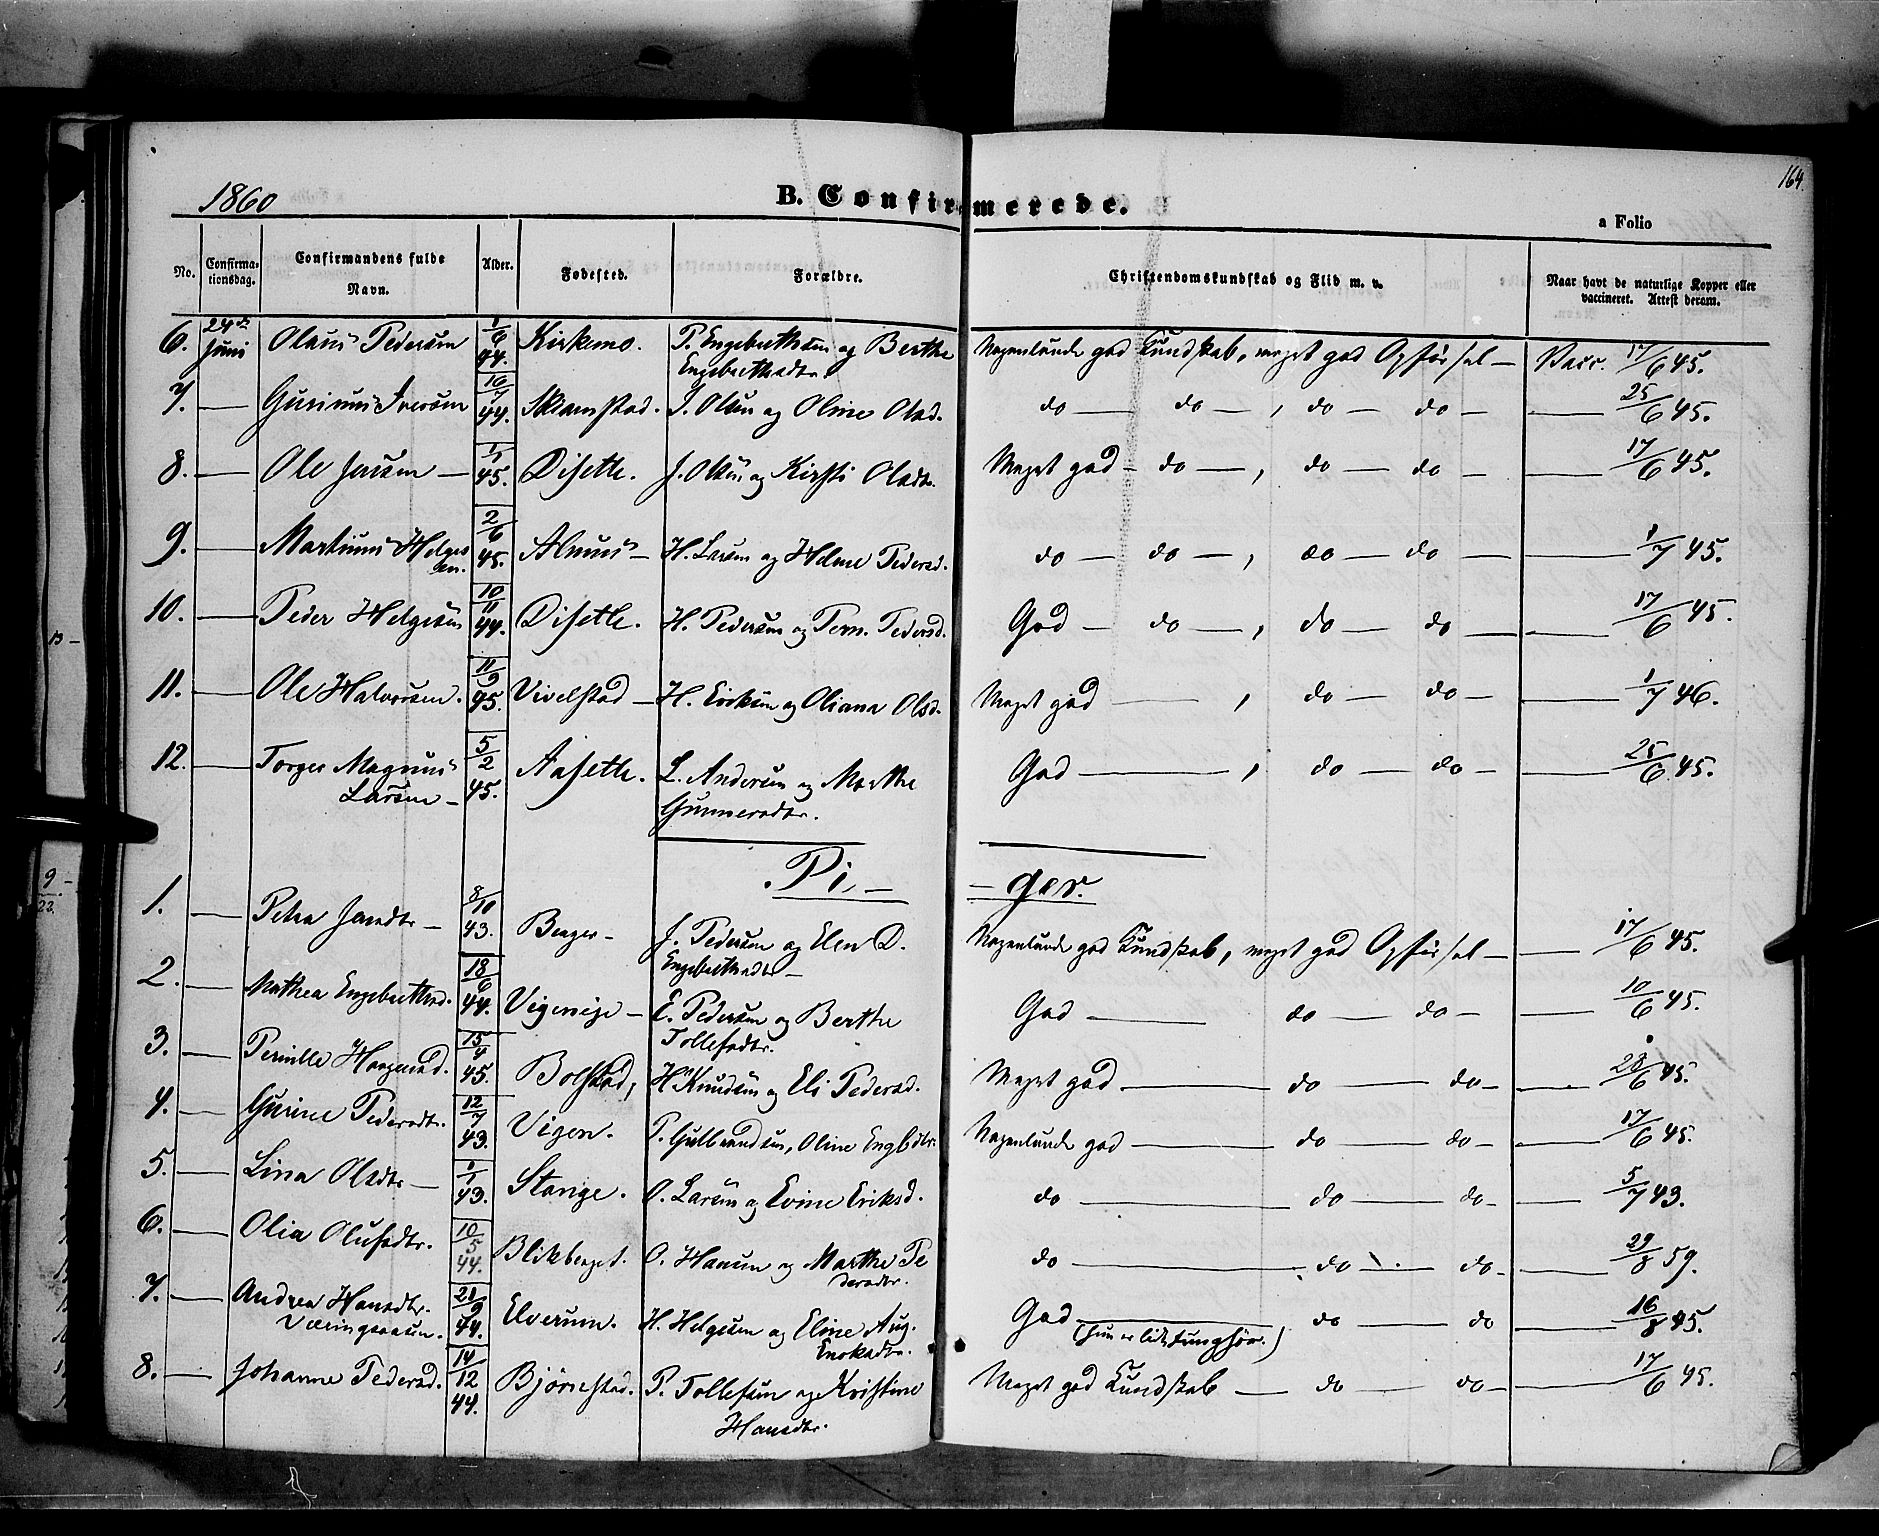 164.
1860
B. Confirmerede.
a Folio
No. Confirma-tionsdag. Confirmandens fulde Navn. Alder. Fødested. Forældre. Christendomskundskab og Flid m. v. Naar havt de naturlige Kopper eller vaccineret. Attest derom.
6. 24de Juni Olaus Pedersen 1/6 44. Kirkemo. P. Engebrethsen og Berthe Engebrethsdtr. Nogenlunde god Kundskab, meget god Opførsel — Vacc. 17/6 45.
7. — Gurinus Iversen 16/7 44. Skramstad. I. Olsen og Oline Olsd. do — do — , do — do — — 25/6 45.
8. — Ole Jensen — 1/1 45. Disette. J. Olsen og Kirsti Olsdtr. Meget god — do — , do — do — — 17/6 45.
9. — Martinus Helgesen. 2/6 45. Alnus — H. Larsen og Helene Pedersd. do — do — , do — do — — 1/7 45.
10. — Peder Helgesen 10/11 44. Disette. H. Pedersen og Pern. Pedersd. God — do — , do — do — — 17/6 45.
11. — Ole Halvorsen. 11/9 45. Vivelstad — H. Eriksen og Oliana Olsd. Meget god — , do — do — — 1/7 46.
12. — Torger Magnus Larsen — 5/2 45. Aasette. L. Andersen og Marthe Gunnersdtr. God — , do — do — — 25/6 45.
Pi — — ger.
1. — Petra Jensdtr — 8/10 43. Berger — J. Pedersen og Elen D. Engebrethsdtr — Nogenlunde god Kundskab, meget god Opførsel — — 17/6 45.
2. — Mathea Engebrethsd. 18/6 44. Vigeneje — E. Pedersen og Berthe Tollefsdtr. God — do — do — — 10/6 45.
3. — Pernille Haagensd. 15/4 45. Bolstad, H. Knudsen og Eli Pedersd. Meget god — do — do — — 28/6 45.
4. — Gurine Pedersdtr. 12/7 43. Vigen. P. Gulbrandsen, Oline Engbdtr. Nogenlunde god — do — do — — 17/6 45.
5. — Lina Olsdtr — 1/1 43. Stange. O. Larsen og Evine Eriksd. do — do — do — — 5/7 43.
6. — Olia Olufsdtr. 10/5 44. Blikberget. O. Hansen og Marthe Pedersdtr. do — do — do — — 29/8 59.
7. — Andrea Hansdtr. Væringsaasen. 21/9 44. Elverum. H. Helgesen og Eline Aug. Enoksdtr. God — (hun er lidt tunghør.) do — do — 16/8 45.
8. — Johanne Pedersd. 14/12 44. Bjørnestad. P. Tollefsen og Kristine Hansdtr. Meget god Kundskab — do — do — — 17/6 45.